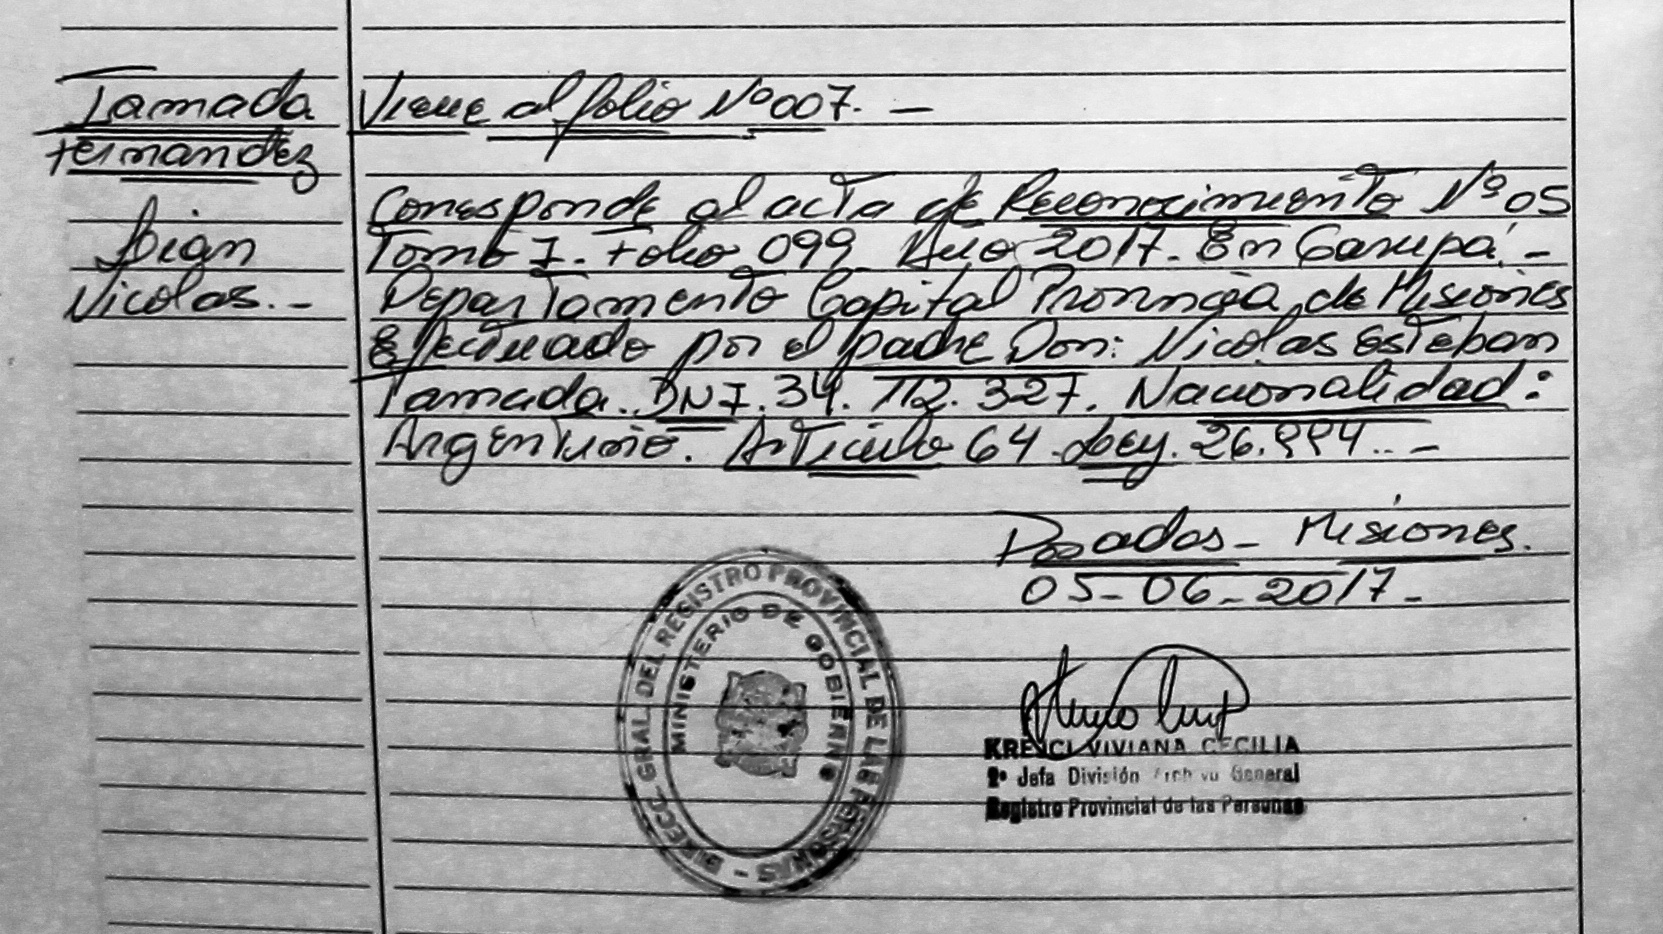 Tamada
Fernandez
Dian
Nicolas.-
Viene al folio Nº 007.-
Corresponde al acta de Reconocimiento Nº 05
Tomo I. Folio 099 Año 2017. En Garupá.-
Departamento Capital Provincia de Misiones
Efectuado por el padre Don: Nicolas Esteban
Tamada. DNI. 34.112.327. Nacionalidad:
Argentino. Artículo 64 Ley. 26.994..-
Posadas - Misiones.
05-06-2017-
DIRECC. GRAL. DEL REGISTRO PROVINCIAL DE LAS PERSONAS -
MINISTERIO DE GOBIERNO
KREJCI VIVIANA CECILIA
2º Jefa División Archivo General
Registro Provincial de las Personas